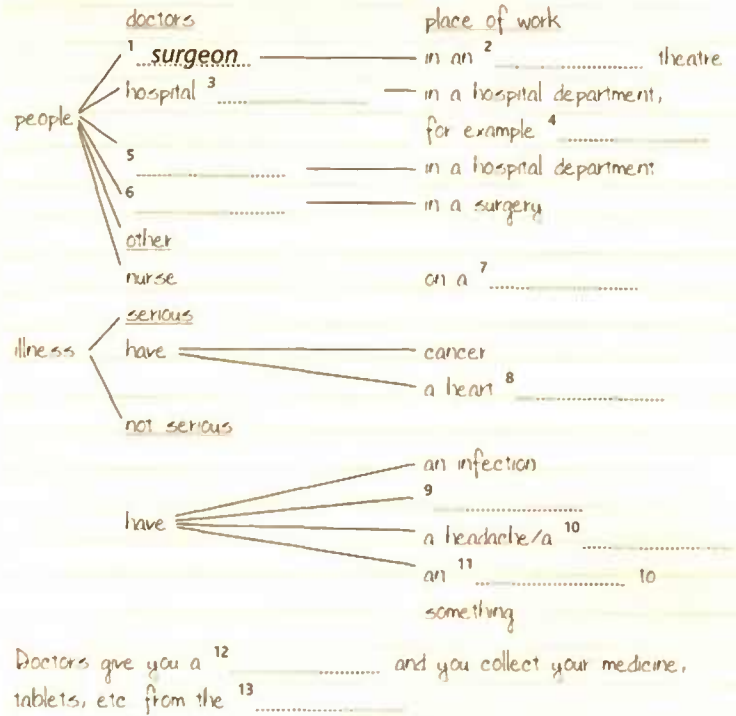 doctors place of work
1 surgeon in an 2 theatre
hospital 3 in a hospital department,
people for example 4
5 in a hospital department
6 in a surgery
other
nurse on a 7
serious
illness have cancer
a heart 8
not serious
an infection
9
have a headache/a 10
an 11 to
something
Doctors give you a 12 and you collect your medicine,
tablets, etc from the 13